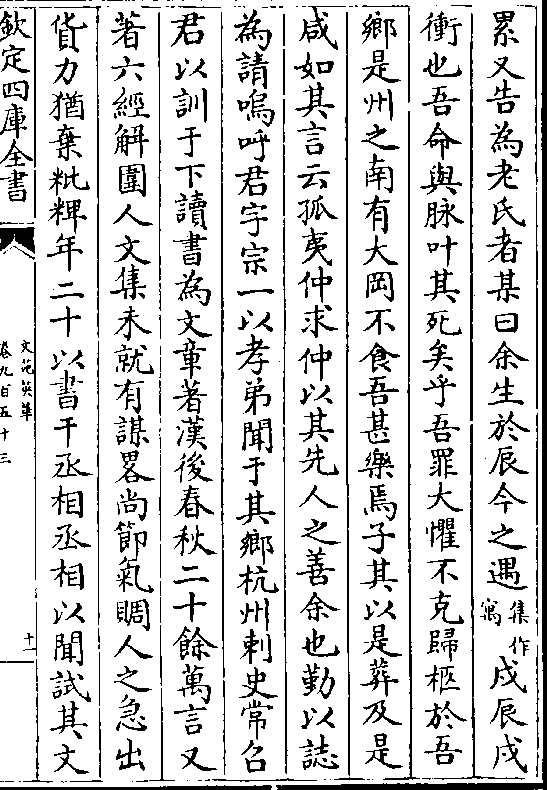 累又告為老氏者某曰余生於辰今之遇集作寓戍辰戍
衝也吾命與脉叶其死矣乎吾罪大懼不克歸柩於吾
鄉是州之南有大岡不食吾甚樂焉子其以是葬及是
咸如其言云孤夷仲求仲以其先人之善余也勤以誌
為請嗚呼君字宗一以孝弟聞于其鄉杭州刺史常召
君以訓于下讀書為文章著漢後春秋二十餘萬言又
著六經解圍人文集未就有謀畧尚節氣賙人之急出
貨力猶棄粃粺年二十以書干丞相丞相以聞試其文
欽定四庫全書
文苑英華
卷九百五十三
十一